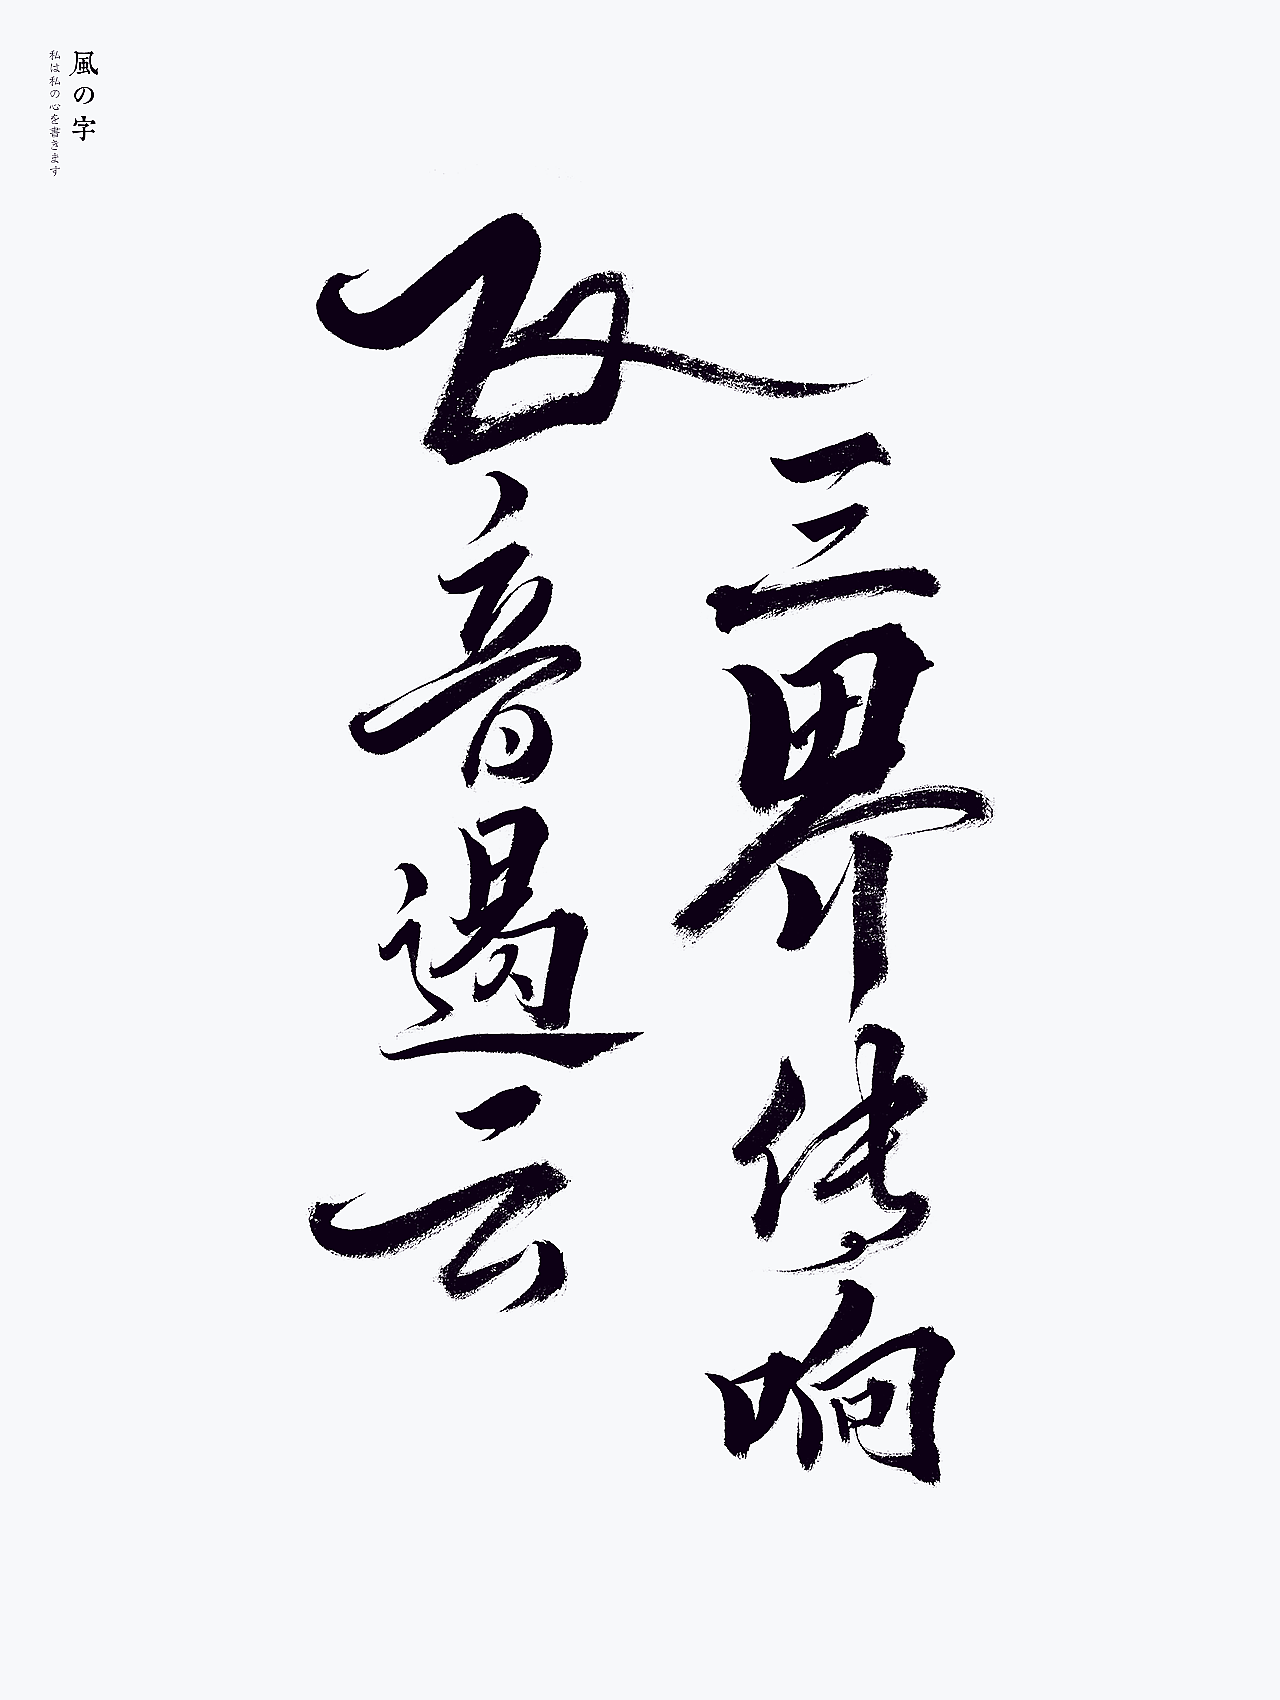 三界传响
飞音遏云
風の字
私は私の心を書きます